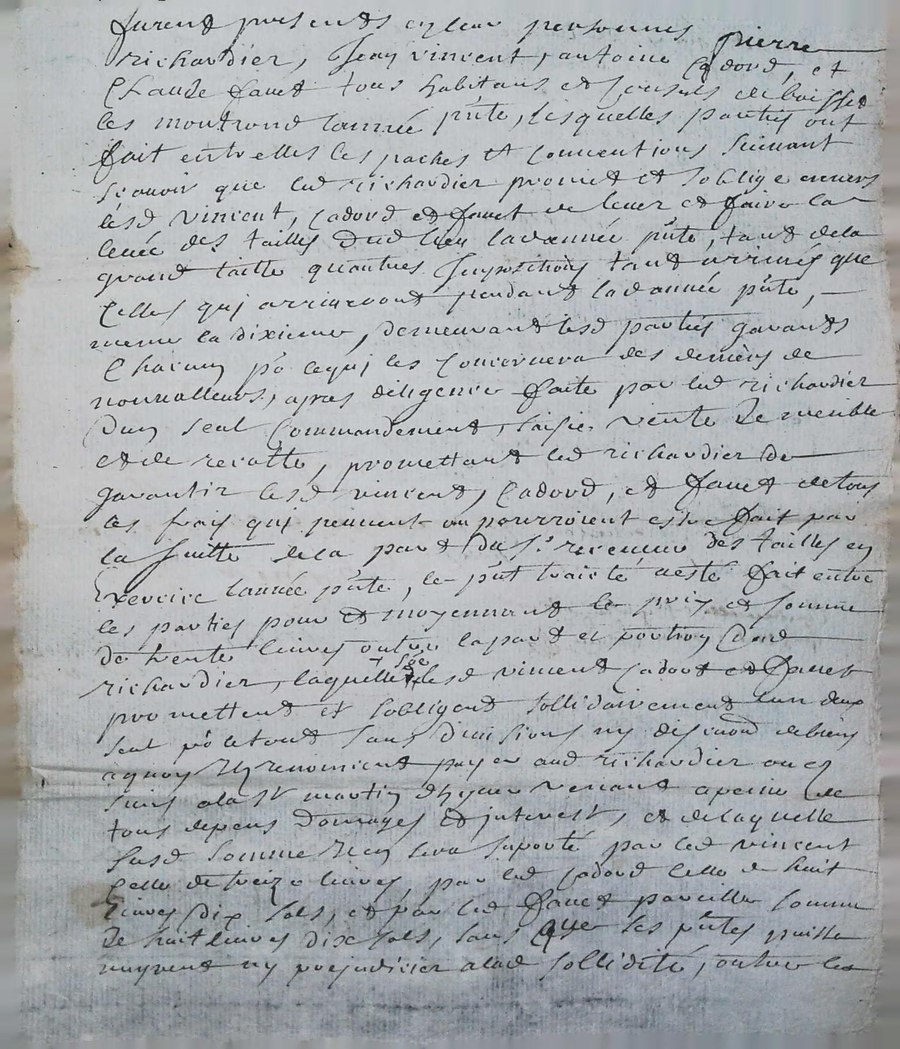 furent presents en leur personnes pierre
richardier, Jean vincent, antoine Cadord, et
Claude fauet tous habitans et Consuls de boisset
les montrond lannée pnte, lesquelles parties ont
fait entrelles les paches et Conuentions Suiuant
Scauoir que led richardier promet et Soblige enuers
lesd vincent, Cadord et fauet de leuer et faire la
leuée des tailles dud lieu lad année pnte, tant de la
grand taille quautres Impositions tant arriués que
Celles quj arriueront pendant lad année pnte,
meme la dixieme, demeurant lesd parties garants
Chacun po lequj les Concernera des deniers de
nouualleurs, apres diligence faite par led richardier
Dun Seul Commandement, Saisie, vente de meuble
et de recolte, promettant led richardier de
garantir lesd vincent, Cadord, et fauet de tous
les frais quj peuuent ou pourroient estre fait par
la Suitte de la part du Sr. receueur des tailles en
Exercice lannée pnte, le pnt traité a esté fait entre
les parties pour et moyennant le prix et Somme
de trente liures outre la part et portion dud
richardier, laquelle Sse lesd vincent Cadord et fauet
promettent et Sobligent Sollidairement lun deux
Seul po le tout Sans diuisions ny discution de biens
a quoy Ils renoncient payer aud richardier ou es
Siens a la St martin dhyuer venant a peine de
tous depens domages et interest, et de laquelle
Susd Somme Il en Sera Suporté par led vincent
Celle de treize liures, par led Cadord Celle de huit
liures dix Sols, et par led fauet pareille Somme
de huit liures dix Sols, Sans que les pntes puisse
nuyrent ny prejudicier a lad Sollidité, outre les